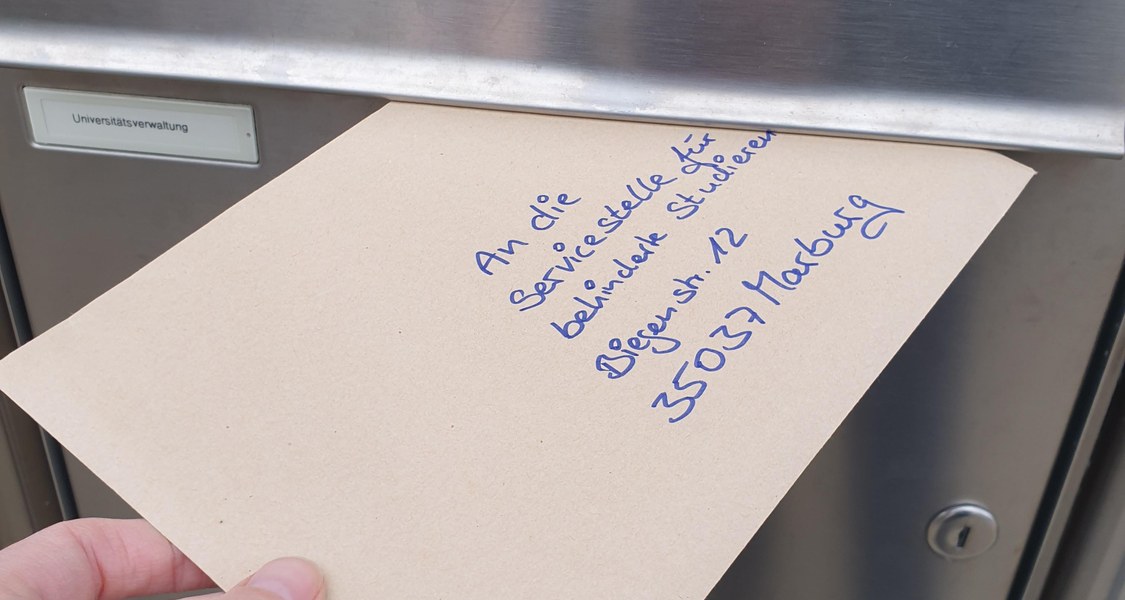 Universitätsverwaltung
An die
Servicestelle für
behinderte Studieren
Biegenstr. 12
35037 Marburg